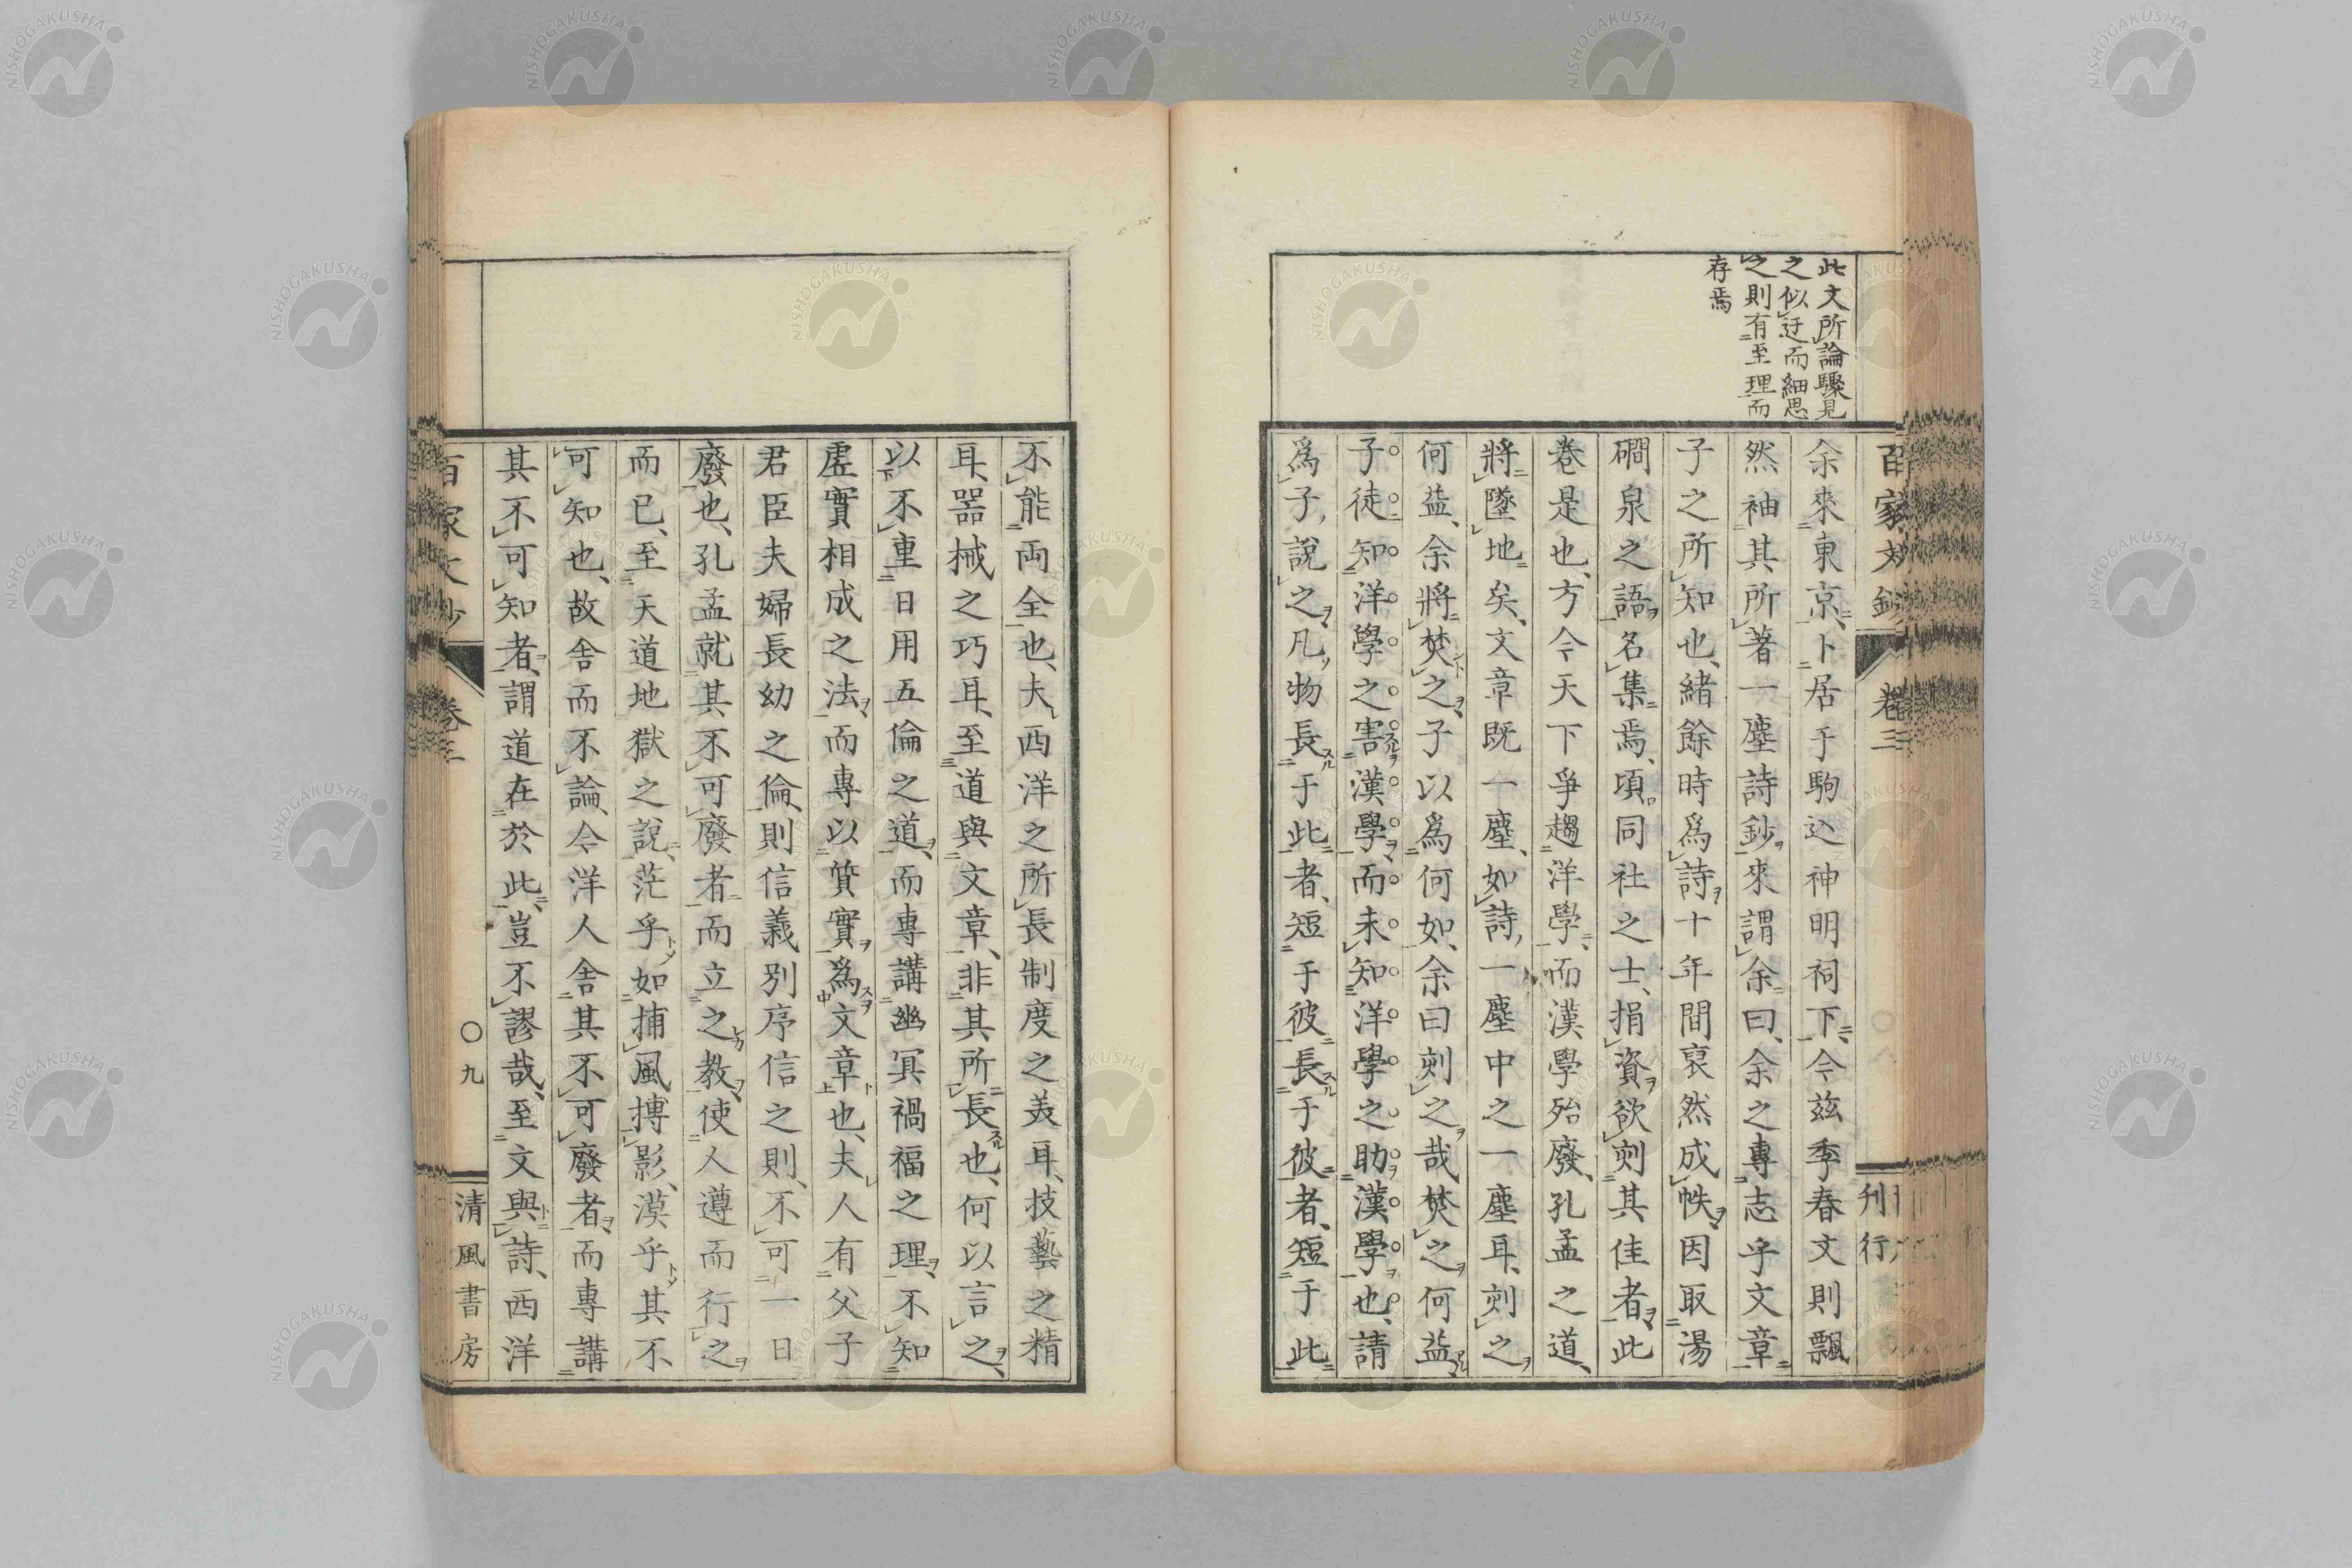 百家文鈔
卷三
刊行
此文所論驟見
之似迂而細思
之則有至理而
存焉
余來東京、卜居于駒込神明祠下、今茲季春文則飄
然袖其所著一塵詩鈔來謂余曰、余之專志乎文章
子之所知也、緒餘時爲詩十年間裒然成帙、因取湯
磵泉之語名集焉、頃同社之士、捐資欲刻其佳者、此
卷是也、方今天下爭趨洋學、而漢學殆廢、孔孟之道、
將墜地矣、文章既一塵、如詩、一塵中之一塵耳、刻之
何益、余將焚之、子以爲何如、余曰刻之哉、焚之何益
子徒知洋學之害漢學、而未知洋學之助漢學也、請
爲子說之、凡物長于此者、短于彼、長于彼者、短于此
不能両全也、夫西洋之所長制度之美耳、技藝之精
耳、器械之巧耳、至道與文章、非其所長也、何以言之、
以不重日用五倫之道、而專講幽冥禍福之理、不知
虛實相成之法、而專以質實爲文章也、夫人有父子
君臣夫婦長幼之倫、則信義別序信之則、不可一日
廢也、孔孟就其不可廢者而立之教、使人遵而行之
而已、至天道地獄之說、茫乎如捕風搏影、漠乎其不
可知也、故舍而不論、今洋人舍其不可廢者而專講
其不可知者、謂道在於此、豈不謬哉、至文與詩、西洋
百家文鈔
卷三
〇九
清風書房